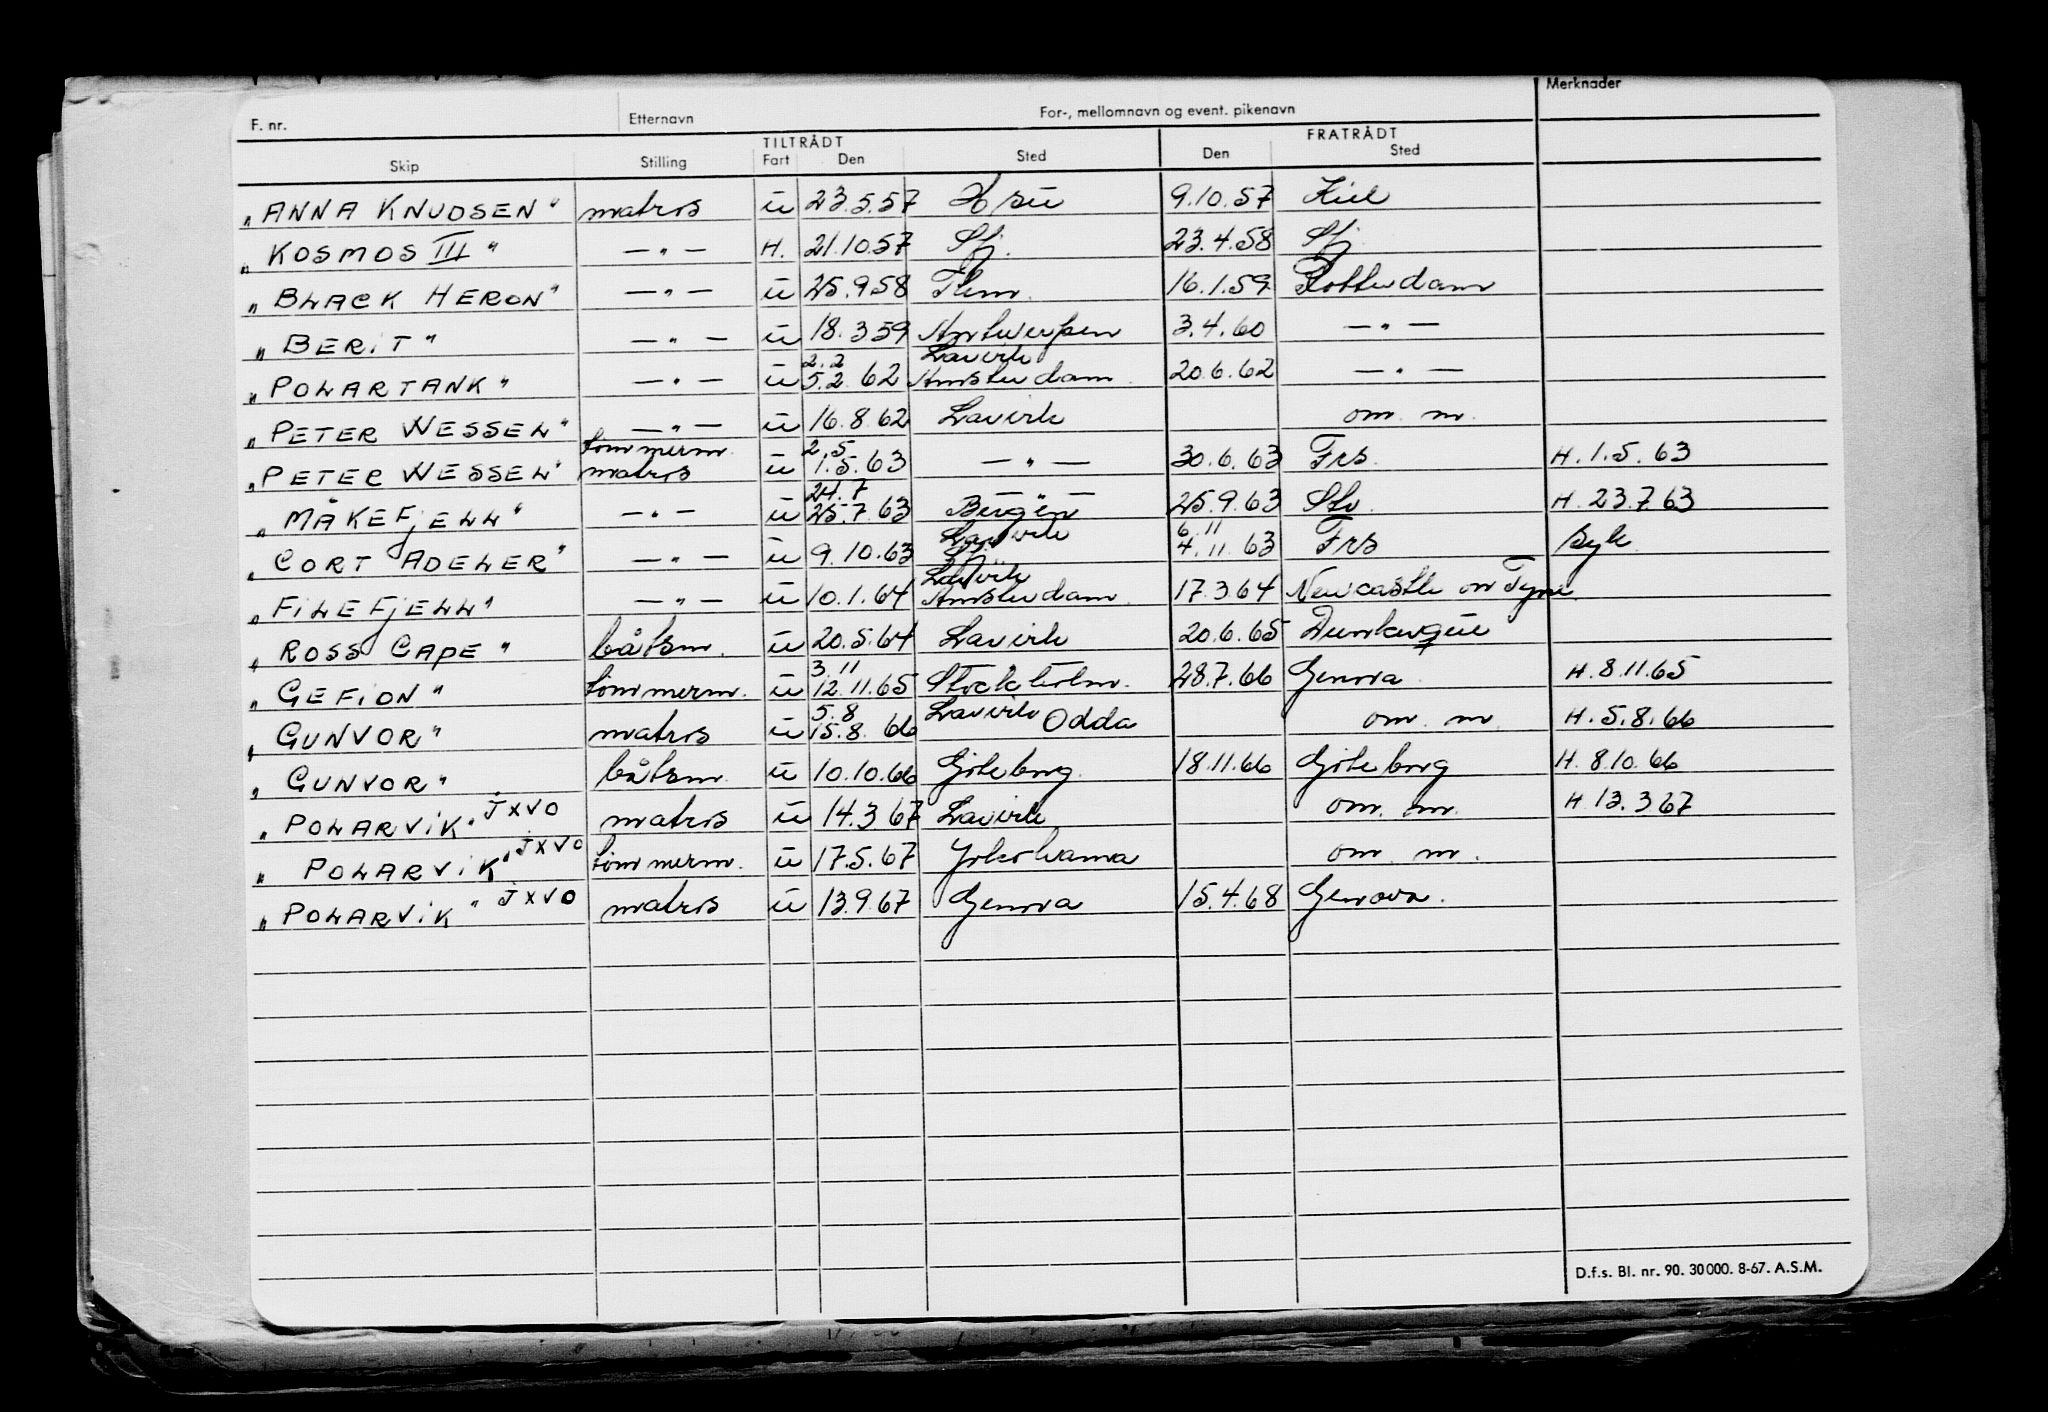 Merknader
F. nr. Etternavn For-, mellomnavn og event. pikenavn
TILTRÅDT FRATRÅDT
Skip Stilling Fart Den Sted Den Sted
"ANNA KNUDSEN" matros u 23.5.57 9.10.57 Kiel
"KOSMOS III" — " — H. 21.10.57 Sfj. 23.4.58 Sfj.
"BLACK HERON" — " — u 25.9.58 16.1.59 Rotterdam
"BERIT" — " — u 18.3.59 Antwerpen 3.4.60 — " —
2.2 Larvik
"POLARTANK" — " — u 5.2.62 Amsterdam. 20.6.62 — " —
"PETER WESSEL" — " — u 16.8.62 Larvik om. m.
tømmerm. 2.5
"PETER WESSEL" matros u 1.5.63 — " — 30.6.63 Frs. H. 1.5.63
24.7 — " —
"MÅKEFJELL" — " — u 25.7.63 Bergen 25.9.63 H. 23.7.63
Larvik 6.11
"CORT ADELER" — " — u 9.10.63 4.11.63 Frs Syk
Larvik
"FILEFJELL" — " — u 10.1.64 Amsterdam. 17.3.64 Newcastle on Tyne.
"ROSS CAPE" båtsm. u 20.5.64 Larvik 20.6.65 Dunkerque
3.11
"GEFION" tømmerm. u 12.11.65 Stockholm. 28.7.66 Genova. H. 8.11.65
5.8 Larvik
"GUNVOR" matros u 15.8.66 Odda om. m. H. 5.8.66
"GUNVOR" båtsm. u 10.10.66 Göteborg. 18.11.66 Göteborg H. 8.10.66
"POLARVIK" JXVO matros u 14.3.67 Larvik om. m. H. 13.3.67
"POLARVIK" JXVO tømmerm. u 17.5.67 Yokohama om. m.
"POLARVIK" JXVO matros u 13.9.67 Genova 15.4.68 Genova.
D.f.s. Bl. nr. 90. 30000. 8-67. A.S.M.